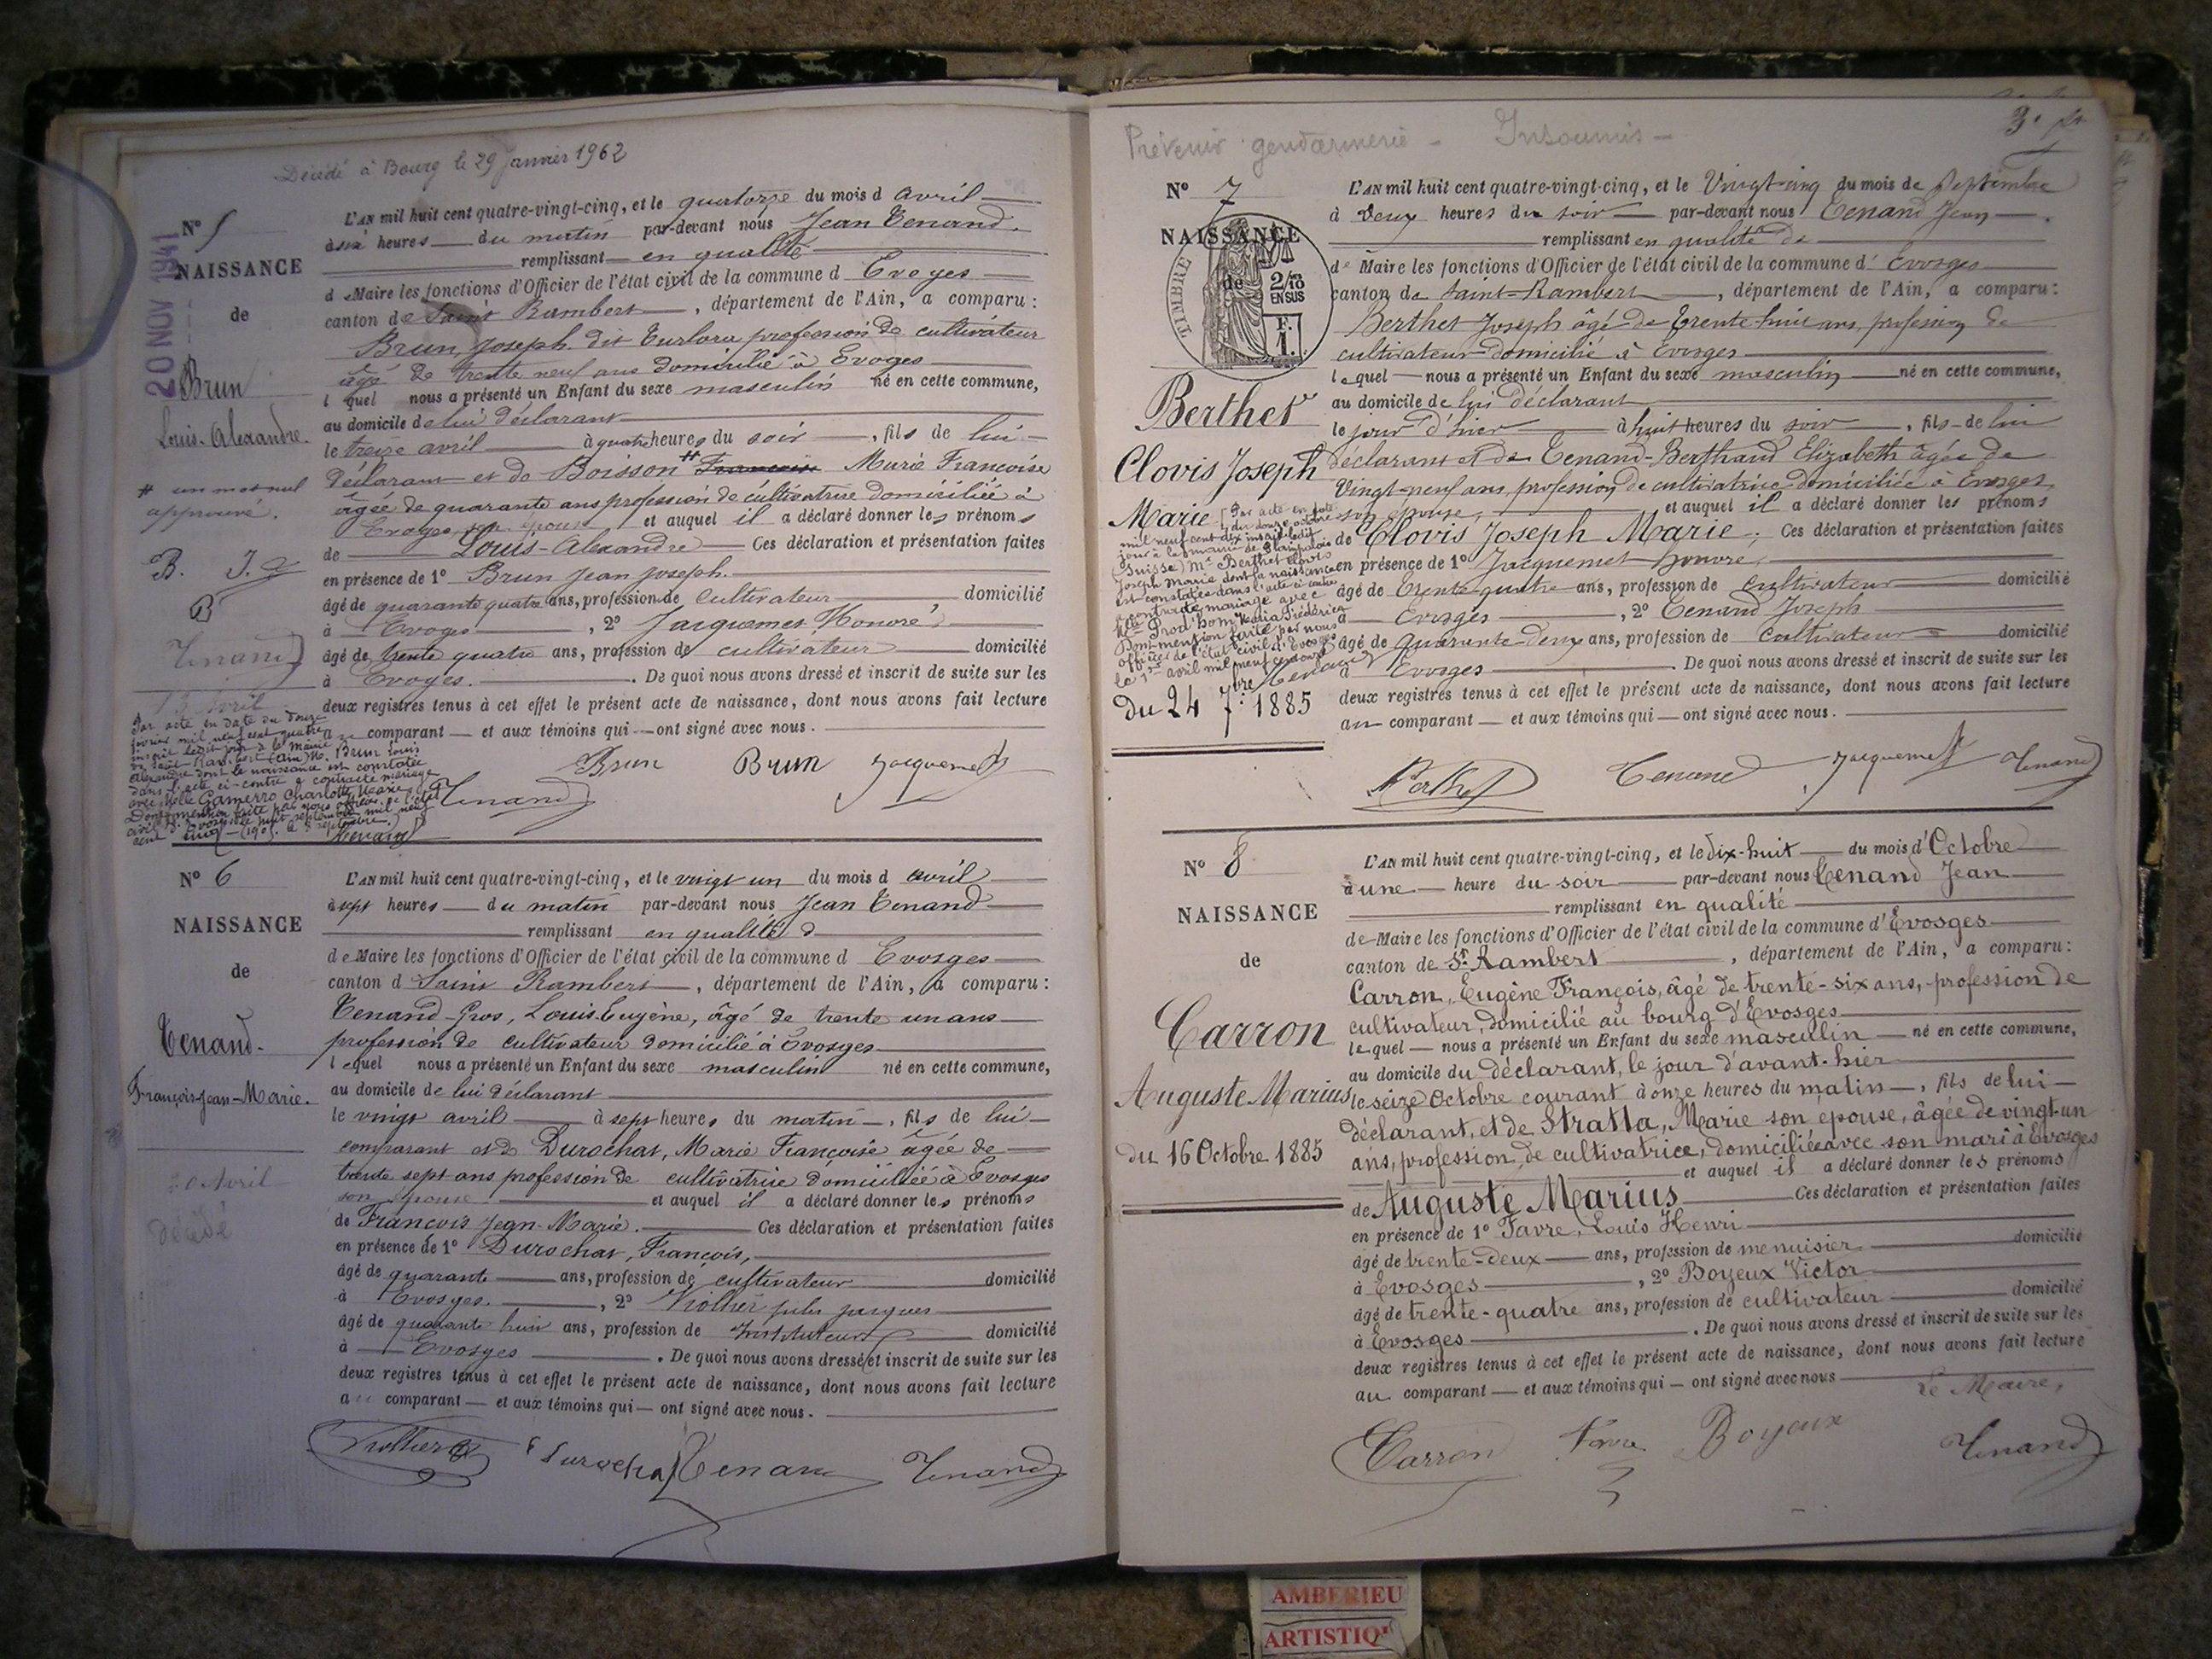 Décédé à Bourg le 29 Janvier 1962
20 NOV 1941
N° 5
NAISSANCE
de
Brun
Louis-Alexandre.
# un mot nul
approuvé.
B. J. J
B
Tenand
13 Avril
Par acte en date du douze
février mil neuf cent quatre
inscrit ledit jour à la Mairie
de Saint Rambert (Ain) M. Brun Louis
Alexandre dont la naissance est constatée
dans l'acte ci-contre a contracté mariage
avec Melle Gamerro Charlotte Marie
Dont mention faite par nous officier de l'état
civil d'Evosges le huit septembre mil neuf
cent cinq (1905. le 8 septembre.)
Tenand
L'AN mil huit cent quatre-vingt-cinq, et le quatorze du mois d avril
à six heures du matin par-devant nous Jean Tenand.
remplissant en qualité
d e Maire les fonctions d'Officier de l'état civil de la commune d Evoges
canton de Saint Rambert, département de l'Ain, a comparu :
Brun, Joseph dit Turlora profession de cultivateur
âgé de trente neuf ans domicilié à Evoges
lequel nous a présenté un Enfant du sexe masculin né en cette commune,
au domicile de lui déclarant
le treize avril à quatre heures du soir, fils de lui
déclarant et de Boisson # Françoise Marie Françoise
âgée de quarante ans profession de cultivatrice domiciliée à
Evoges son épouse et auquel il a déclaré donner les prénoms
de Louis-Alexandre Ces déclaration et présentation faites
en présence de 1° Brun Jean Joseph.
âgé de quarante quatre ans, profession de cultivateur domicilié
à Evoges, 2° Jacquemet Honoré
âgé de trente quatre ans, profession de cultivateur domicilié
à Evoges. De quoi nous avons dressé et inscrit de suite sur les
deux registres tenus à cet effet le présent acte de naissance, dont nous avons fait lecture
au comparant et aux témoins qui ont signé avec nous.
Brun Brun Jacquemet
Tenand
N° 6
NAISSANCE
de
Tenand.
François-Jean-Marie.
20 Avril
décédé
L'AN mil huit cent quatre-vingt-cinq, et le vingt un du mois d avril
à sept heures du matin par-devant nous Jean Tenand
remplissant en qualité d
de Maire les fonctions d'Officier de l'état civil de la commune d Evosges
canton d Saint Rambert, département de l'Ain, a comparu :
Tenand-Gros, Louis Eugène, âgé de trente un ans
profession de cultivateur domicilié à Evosges
lequel nous a présenté un Enfant du sexe masculin né en cette commune,
au domicile de lui déclarant
le vingt avril à sept heures du matin, fils de lui
comparant et de Durochat, Marie Françoise âgée de
trente sept ans profession de cultivatrice domiciliée à Evosges
son épouse et auquel il a déclaré donner les prénoms
de François Jean-Marie. Ces déclaration et présentation faites
en présence de 1° Durochat, François,
âgé de quarante ans, profession de cultivateur domicilié
à Evosges., 2° Viollier Jules Jacques
âgé de quarante huit ans, profession de Instituteur domicilié
à Evosges. De quoi nous avons dressé et inscrit de suite sur les
deux registres tenus à cet effet le présent acte de naissance, dont nous avons fait lecture
au comparant et aux témoins qui ont signé avec nous.
Viollier Durochat Tenand Tenand
Prévenir gendarmerie - Insoumis -
3e
N° 7
NAISSANCE
de
TIMBRE
2/10
EN SUS
F.
1.
Berthet
Clovis Joseph
Marie
Par acte en date
du douze octobre
mil neuf cent dix inscrit ledit
jour à la mairie de Plainpalais
(Suisse) Mr Berthet Clovis
Joseph Marie dont la naissance
est constatée dans l'acte ci-contre
a contracté mariage avec
Melle Prod'hom Maria Frédérica
Dont mention faite par nous
officier de l'état civil d'Evosges
le 1er avril mil neuf cent onze
Tenand
du 24 7bre 1885
L'AN mil huit cent quatre-vingt-cinq, et le Vingt-cinq du mois de Septembre
à deux heures du soir par-devant nous Tenand Jean.
remplissant en qualité de
de Maire les fonctions d'Officier de l'état civil de la commune d' Evosges
canton de Saint-Rambert, département de l'Ain, a comparu :
Berthet Joseph âgé de trente huit ans, profession de
cultivateur domicilié à Evosges
lequel nous a présenté un Enfant du sexe masculin né en cette commune,
au domicile de lui déclarant
le jour d'hier à huit heures du soir, fils de lui
déclarant et de Tenand-Berthaud Elizabeth âgée de
vingt-neuf ans, profession de cultivatrice domiciliée à Evosges
son épouse, et auquel il a déclaré donner les prénoms
de Clovis Joseph Marie. Ces déclaration et présentation faites
en présence de 1° Jacquemet honoré
âgé de trente-quatre ans, profession de Cultivateur domicilié
à Evosges, 2° Tenand Joseph
âgé de Quarante-deux ans, profession de Cultivateur domicilié
à Evosges. De quoi nous avons dressé et inscrit de suite sur les
deux registres tenus à cet effet le présent acte de naissance, dont nous avons fait lecture
au comparant et aux témoins qui ont signé avec nous.
Berthet Tenand Jacquemet Tenand
N° 8
NAISSANCE
de
Carron
Auguste Marius
du 16 Octobre 1885
L'AN mil huit cent quatre-vingt-cinq, et le dix-huit du mois d'Octobre
à une heure du soir par-devant nous Tenand Jean
remplissant en qualité
de Maire les fonctions d'Officier de l'état civil de la commune d'Evosges
canton de St Rambert, département de l'Ain, a comparu :
Carron, Eugène François, âgé de trente-six ans, profession de
cultivateur, domicilié au bourg d'Evosges
lequel nous a présenté un Enfant du sexe masculin né en cette commune,
au domicile du déclarant, le jour d'avant-hier
le seize Octobre courant à onze heures du matin, fils de lui
déclarant, et de Stratta, Marie son épouse, âgée de vingt-un
ans, profession de cultivatrice, domiciliée avec son mari à Evosges
et auquel il a déclaré donner les prénoms
de Auguste Marius Ces déclaration et présentation faites
en présence de 1° Favre, Louis Henri
âgé de trente-deux ans, profession de menuisier domicilié
à Evosges, 2° Boyeux Victor
âgé de trente-quatre ans, profession de cultivateur domicilié
à Evosges. De quoi nous avons dressé et inscrit de suite sur les
deux registres tenus à cet effet le présent acte de naissance, dont nous avons fait lecture
au comparant et aux témoins qui ont signé avec nous
Le Maire,
Carron Favre Boyeux Tenand
AMBERIEU
ARTISTIQ